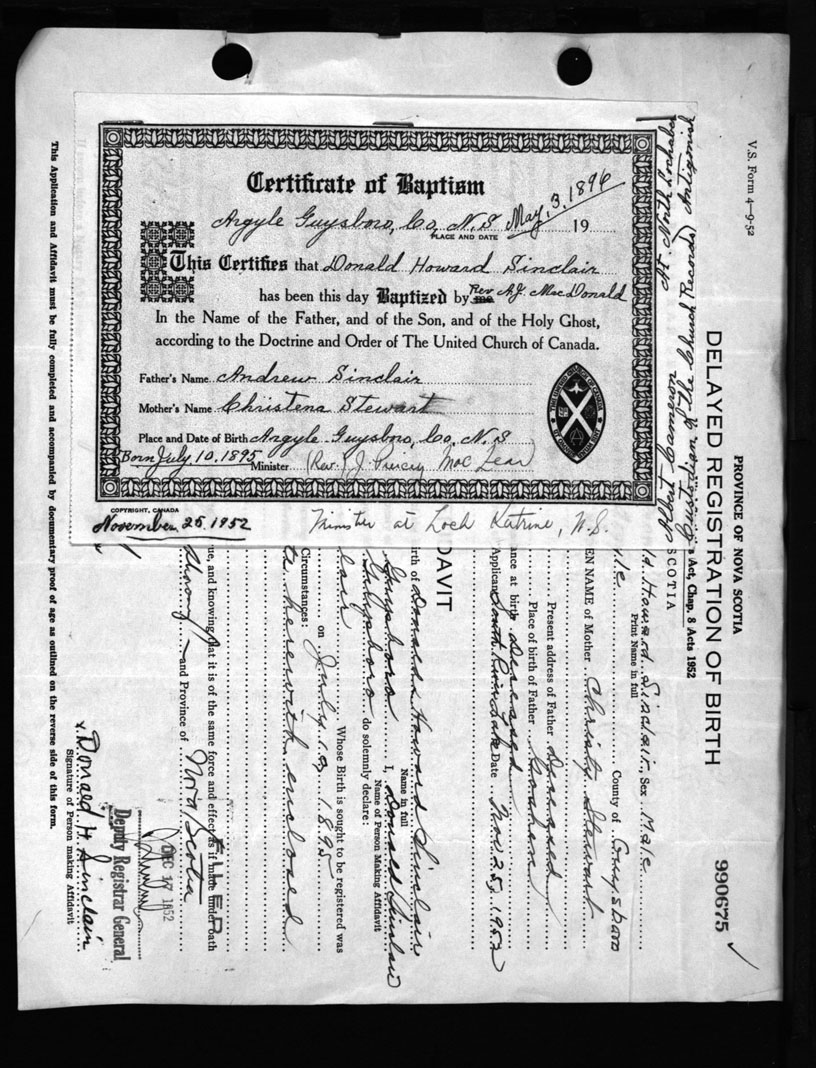 Certificate of Baptism
Argyle Guysboro, Co, N.S May, 3, 1896 19
PLACE AND DATE
This Certifies that Donald Howard Sinclair
has been this day Baptized by me Rev A.J. MacDonald
In the Name of the Father, and of the Son, and of the Holy Ghost,
according to the Doctrine and Order of The United Church of Canada.
Father's Name Andrew Sinclair
Mother's Name Christena Stewart
Place and Date of Birth Argyle Guysboro, Co, N.S
Born July, 10, 1895 Minister (Rev.) J. MacLean
COPYRIGHT, CANADA
November 25, 1952 Minister at Loch Katrine, N.S.
V.S. Form 4—9-52
PROVINCE OF NOVA SCOTIA
DELAYED REGISTRATION OF BIRTH
990675
s Act, Chap. 8 Acts 1952
SCOTIA
ld Howard Sinclair, Sex Male
Print Name in full
le County of Guysboro
EN NAME of Mother Christy Stewart
Present address of Father Deceased
Place of birth of Father Goshen
ance at birth Deceased
Applicant South River Lake Date Nov 25, 1952
DAVIT
irth of Donald Howard Sinclair
Name in full
Guysboro I, Donald Sinclair
Name of Person Making Affidavit
Guysboro do solemnly declare:
lair Whose Birth is sought to be registered was
on July 10 1895
Circumstances:
ts herewith enclosed
ue, and knowing that it is of the same force and effect as if made under oath
FILED
and Province of Nova Scotia
DEC 17 1952
Deputy Registrar General
x Donald H. Sinclair
Signature of Person making Affidavit
This Application and Affidavit must be fully completed and accompanied by documentary proof of age as outlined on the reverse side of this form.